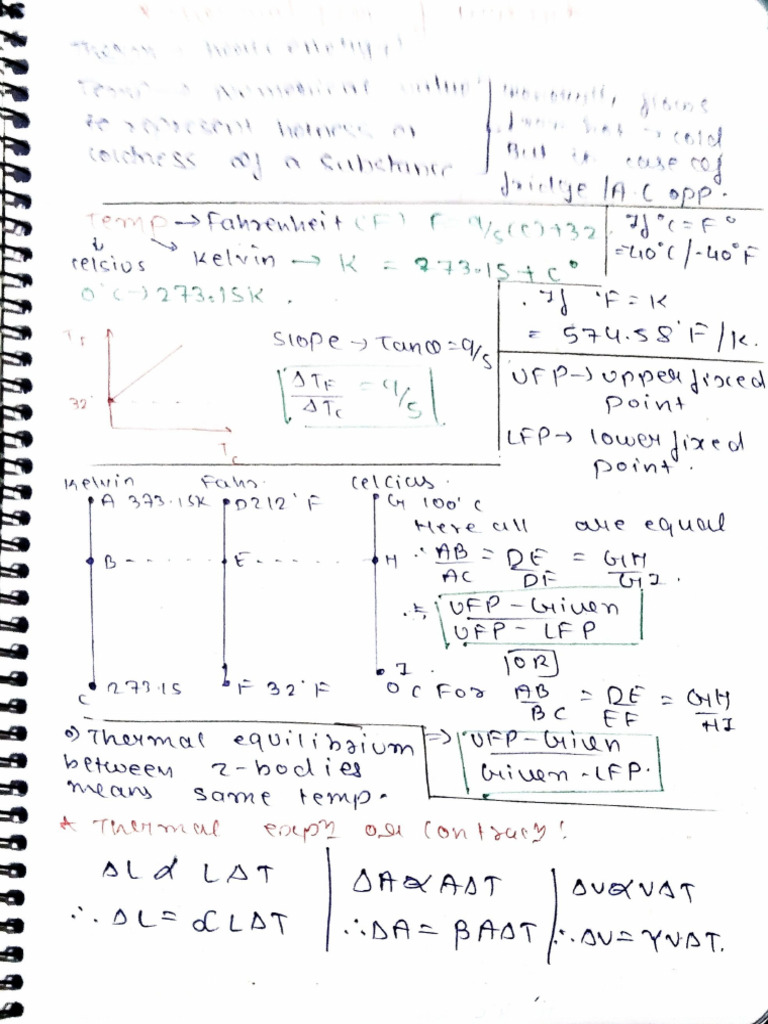 Temp → numerical value
to represent hotness or
coldness of a substance
from hot → cold
But in case of
fridge / A.C opp.
Temp → Fahrenheit (F) F = 9/5(C)+32
If °C = F°
= -40°C / -40°F
celsius Kelvin → K = 273.15 + C°
0°C → 273.15K.
If °F = K
= 574.58°F/K.
Slope → Tanθ = 9/5
ΔTF/ΔTC = 9/5
32°
TC
UFP → upper fixed
point
LFP → lower fixed
point.
Kelvin Fahr. Celcius.
A 373.15K D 212°F G 100°C
Here all are equal
B E H
∴ AB/AC = DE/DF = GH/GI.
UFP - Given / UFP - LFP
OR
C 273.15 F 32°F I 0°C
For AB/BC = DE/EF = GH/HI
⇒ UFP - Given / Given - LFP.
Thermal equilibrium
between 2-bodies
means same temp.
* Thermal expn or contracn!
ΔL ∝ LΔT ΔA ∝ AΔT ΔV ∝ VΔT
∴ ΔL = αLΔT ∴ ΔA = βAΔT ∴ ΔV = γVΔT.